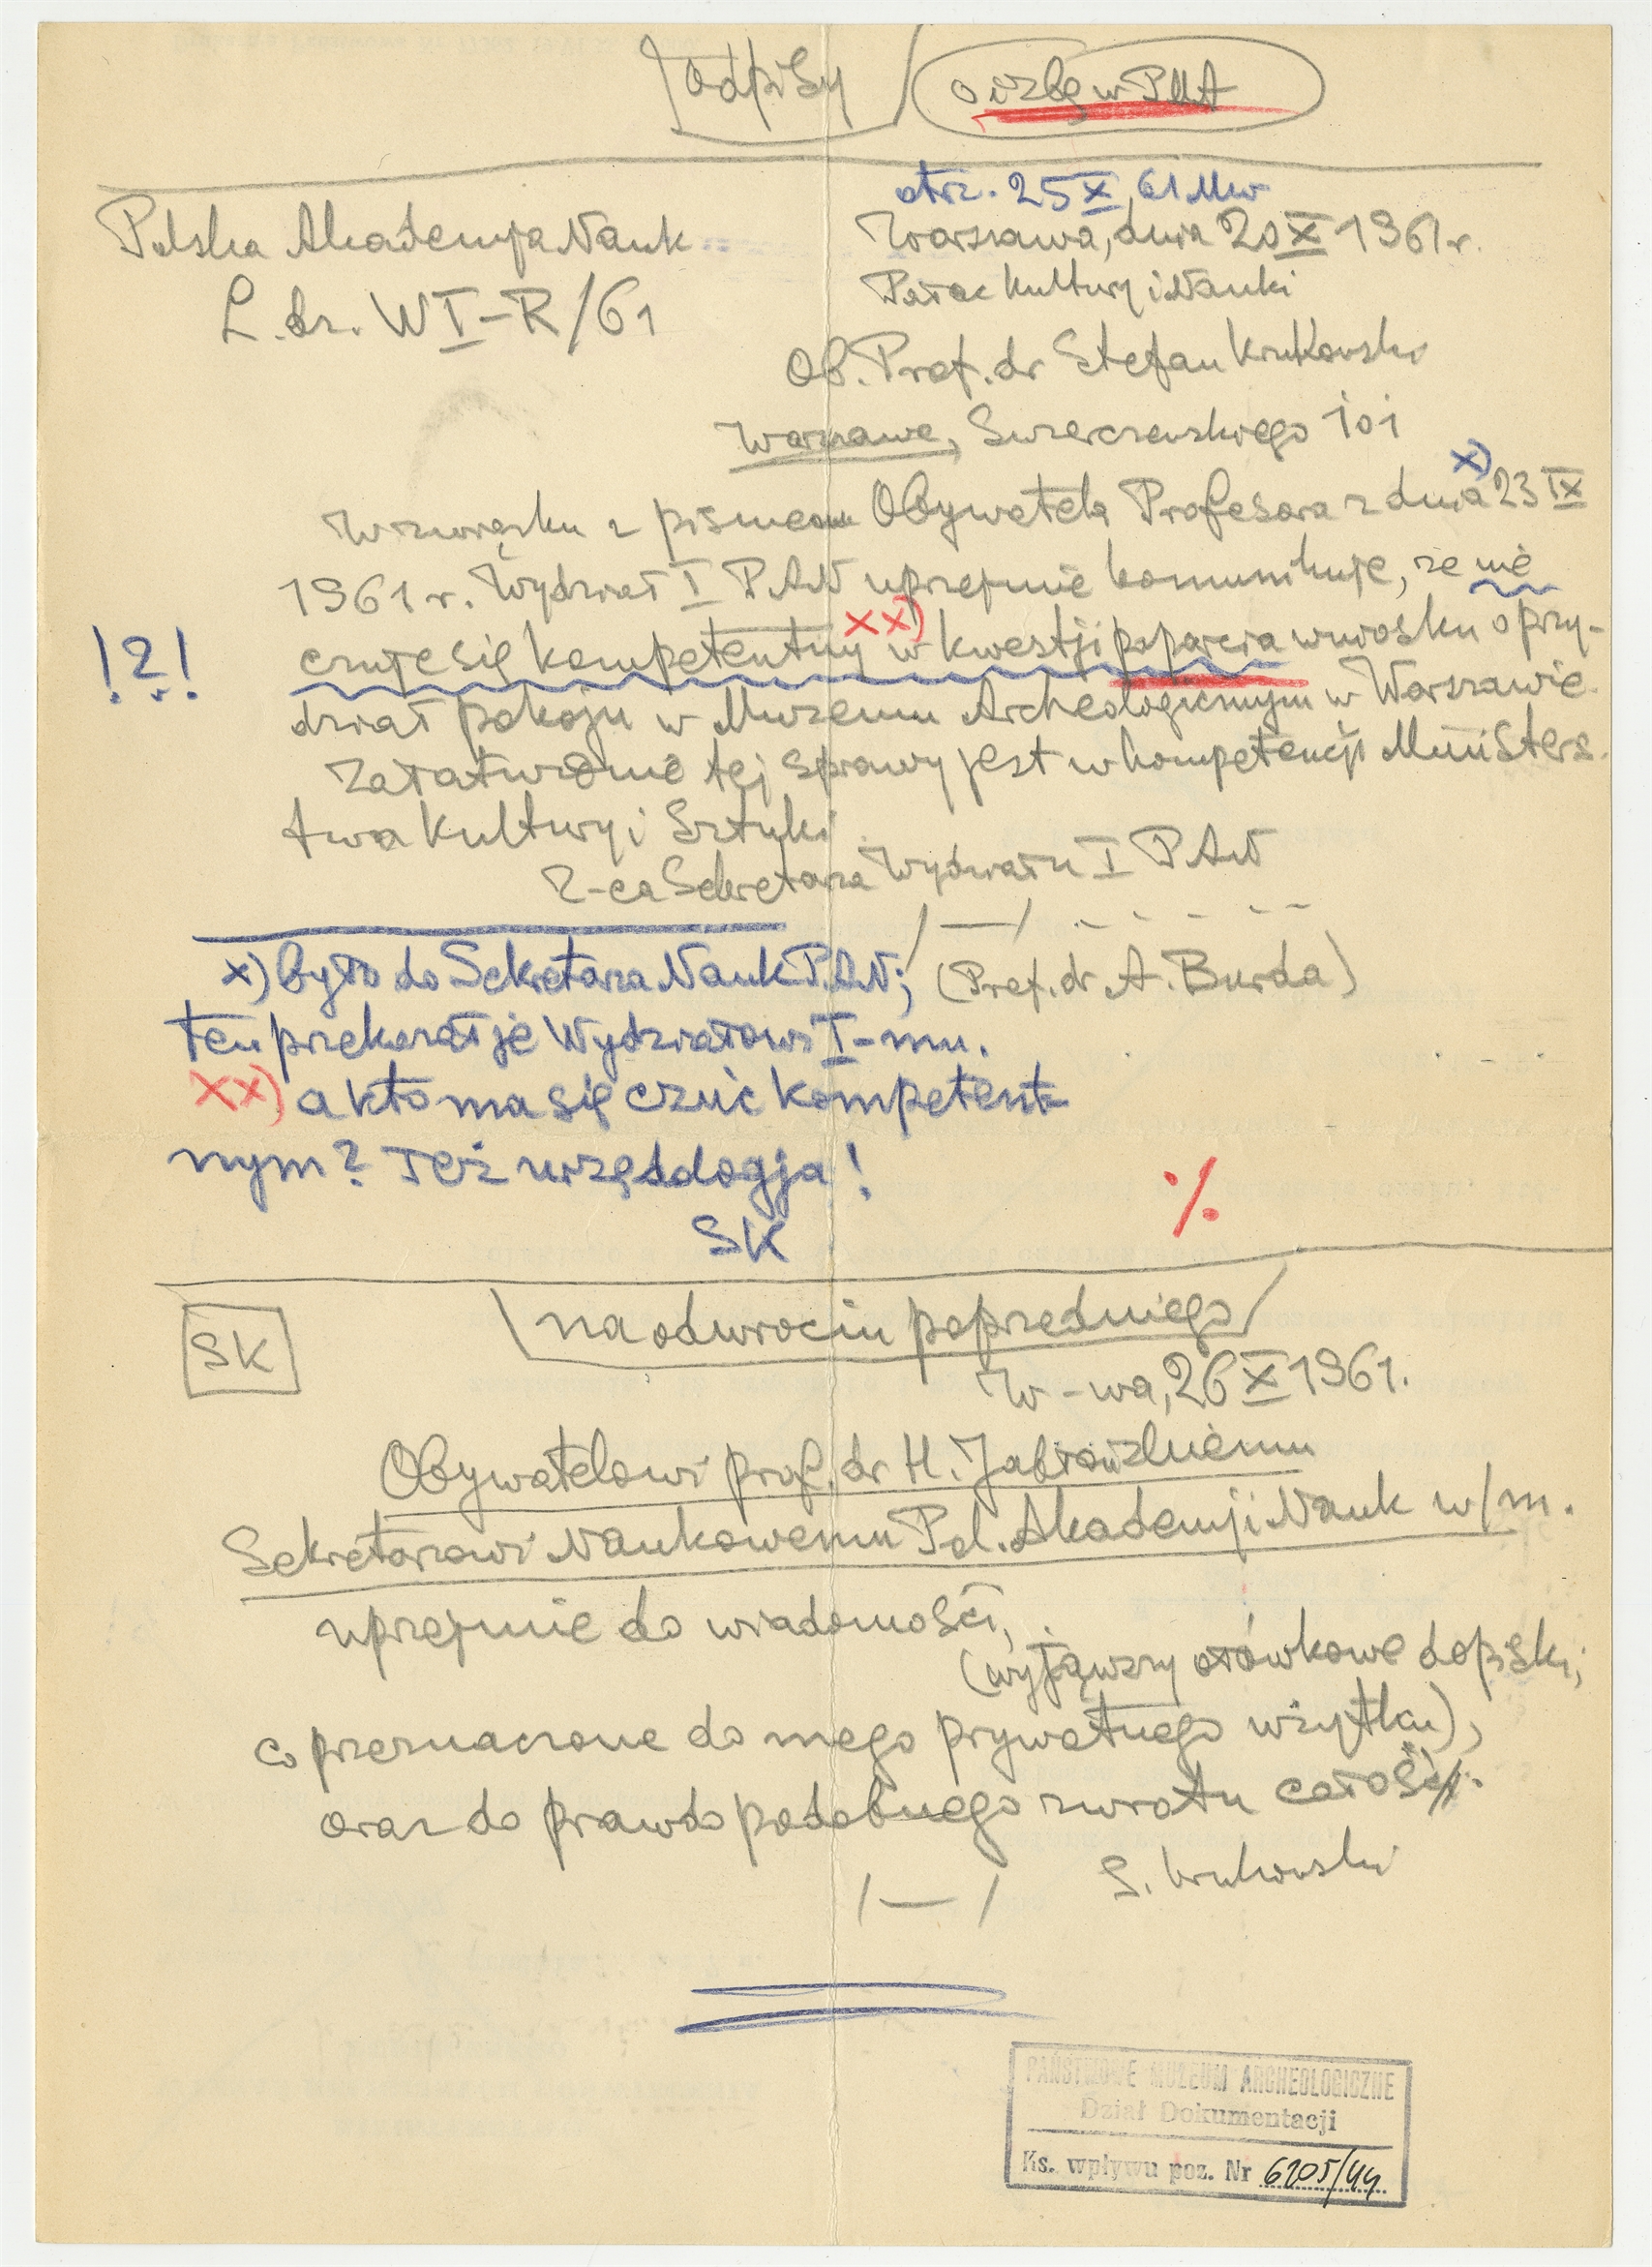 odpisy
o izbę w PMA
otrz. 25 X 61 Mw
Polska Akademja Nauk
Warszawa, dnia 20 X 1961 r.
L.dz. WI-R/61
Pałac Kultury i Nauki
Ob. Prof. dr Stefan Krukowski
Warszawa, Świerczewskiego 101
W związku z pismem Obywatela Profesora z dnia x) 23 IX
1961 r. Wydział I PAN uprzejmie komunikuje, że nie
!?!
czuje się kompetentny xx) w kwestji poparcia wniosku o przy-
dział pokoju w Muzeum Archeologicznym w Warszawie.
Załatwienie tej sprawy jest w kompetencji Minister-
stwa Kultury i Sztuki
Z-ca Sekretarza Wydziału I PAN
/—/ - - - - -
x) było do Sekretarza Nauk PAN;
(Prof. dr A. Burda)
ten przekazał je Wydziałowi I-mu.
xx) a kto ma się czuć kompetent
nym? Też urzędologja!
SK
%
SK
na odwrociu poprzedniego
W-wa, 26 X 1961.
Obywatelowi prof. dr H. Jabłońskiemu
Sekretarzowi Naukowemu Pol. Akademji Nauk w/m.
uprzejmie do wiadomości,
(wyjąwszy ołówkowe dopiski,
co przeznaczone do mego prywatnego użytku),
oraz do prawdopodobnego zwrotu całości.
/—/ S. Krukowski
PAŃSTWOWE MUZEUM ARCHEOLOGICZNE
Dział Dokumentacji
Ks. wpływu poz. Nr 6205/44